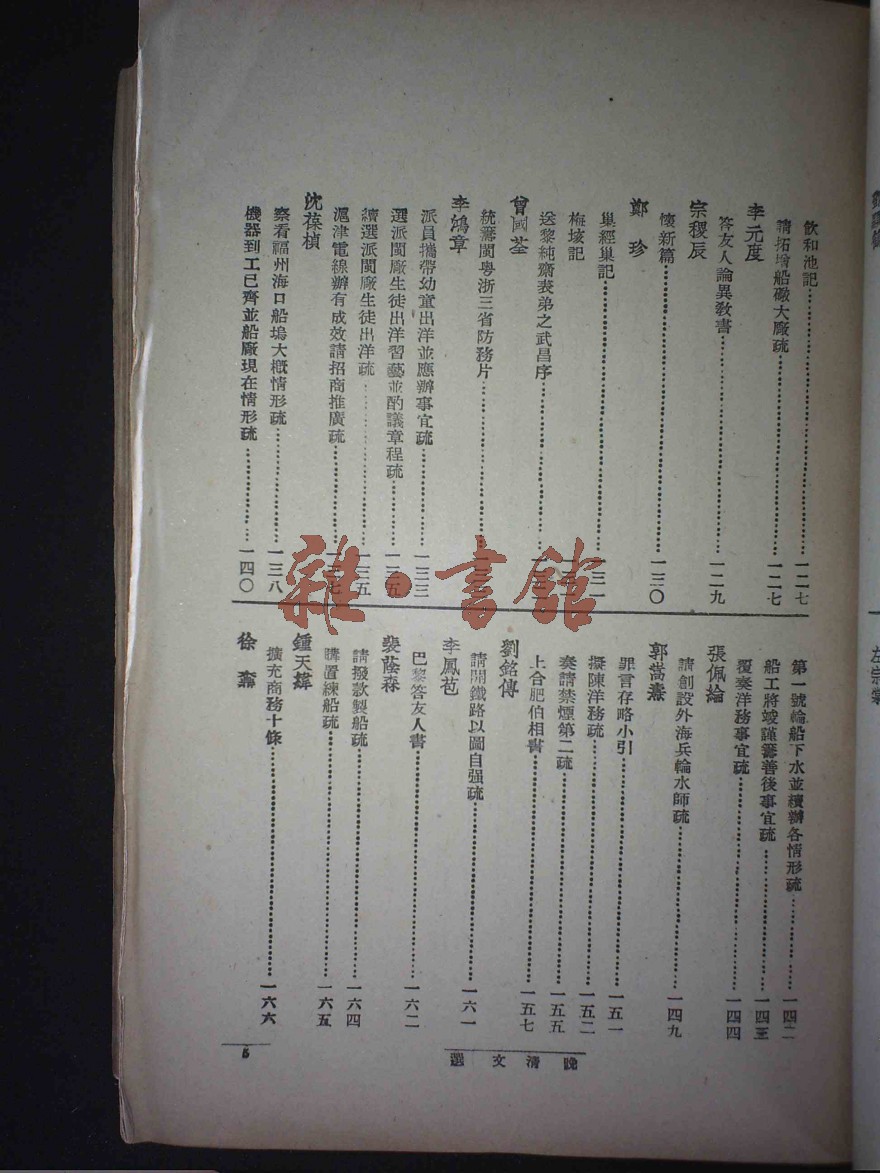 飲和池記……一二七
請拓增船礮大廠疏……一二七
李元度
答友人論異敎書……一二九
宗稷辰
懷新篇……一三〇
鄭珍
巢經巢記……一三一
梅垓記
送黎純齋表弟之武昌序
曾國荃
統籌閩粵浙三省防務片
李鴻章
派員攜帶幼童出洋並應辦事宜疏……一三三
選派閩廠生徒出洋習藝並酌議章程疏……一三五
續選派閩廠生徒出洋疏……一三五
滬津電線辦有成效請招商推廣疏……一三七
沈葆楨
察看福州海口船塢大概情形疏……一三八
機器到工已齊並船廠現在情形疏……一四〇
第一號輪船下水並續辦各情形疏……一四二
船工將竣謹籌善後事宜疏……一四三
覆奏洋務事宜疏……一四四
張佩綸
請創設外海兵輪水師疏……一四九
郭嵩燾
罪言存略小引……一五一
擬陳洋務疏……一五二
奏請禁煙第二疏……一五五
上合肥伯相書……一五七
劉銘傳
請開鐵路以圖自强疏……一六一
李鳳苞
巴黎答友人書……一六二
裴蔭森
請撥款製船疏……一六四
購置練船疏……一六五
鍾天緯
擴充商務十條……一六六
徐
晚清文選
5
雜·書館
左宗棠